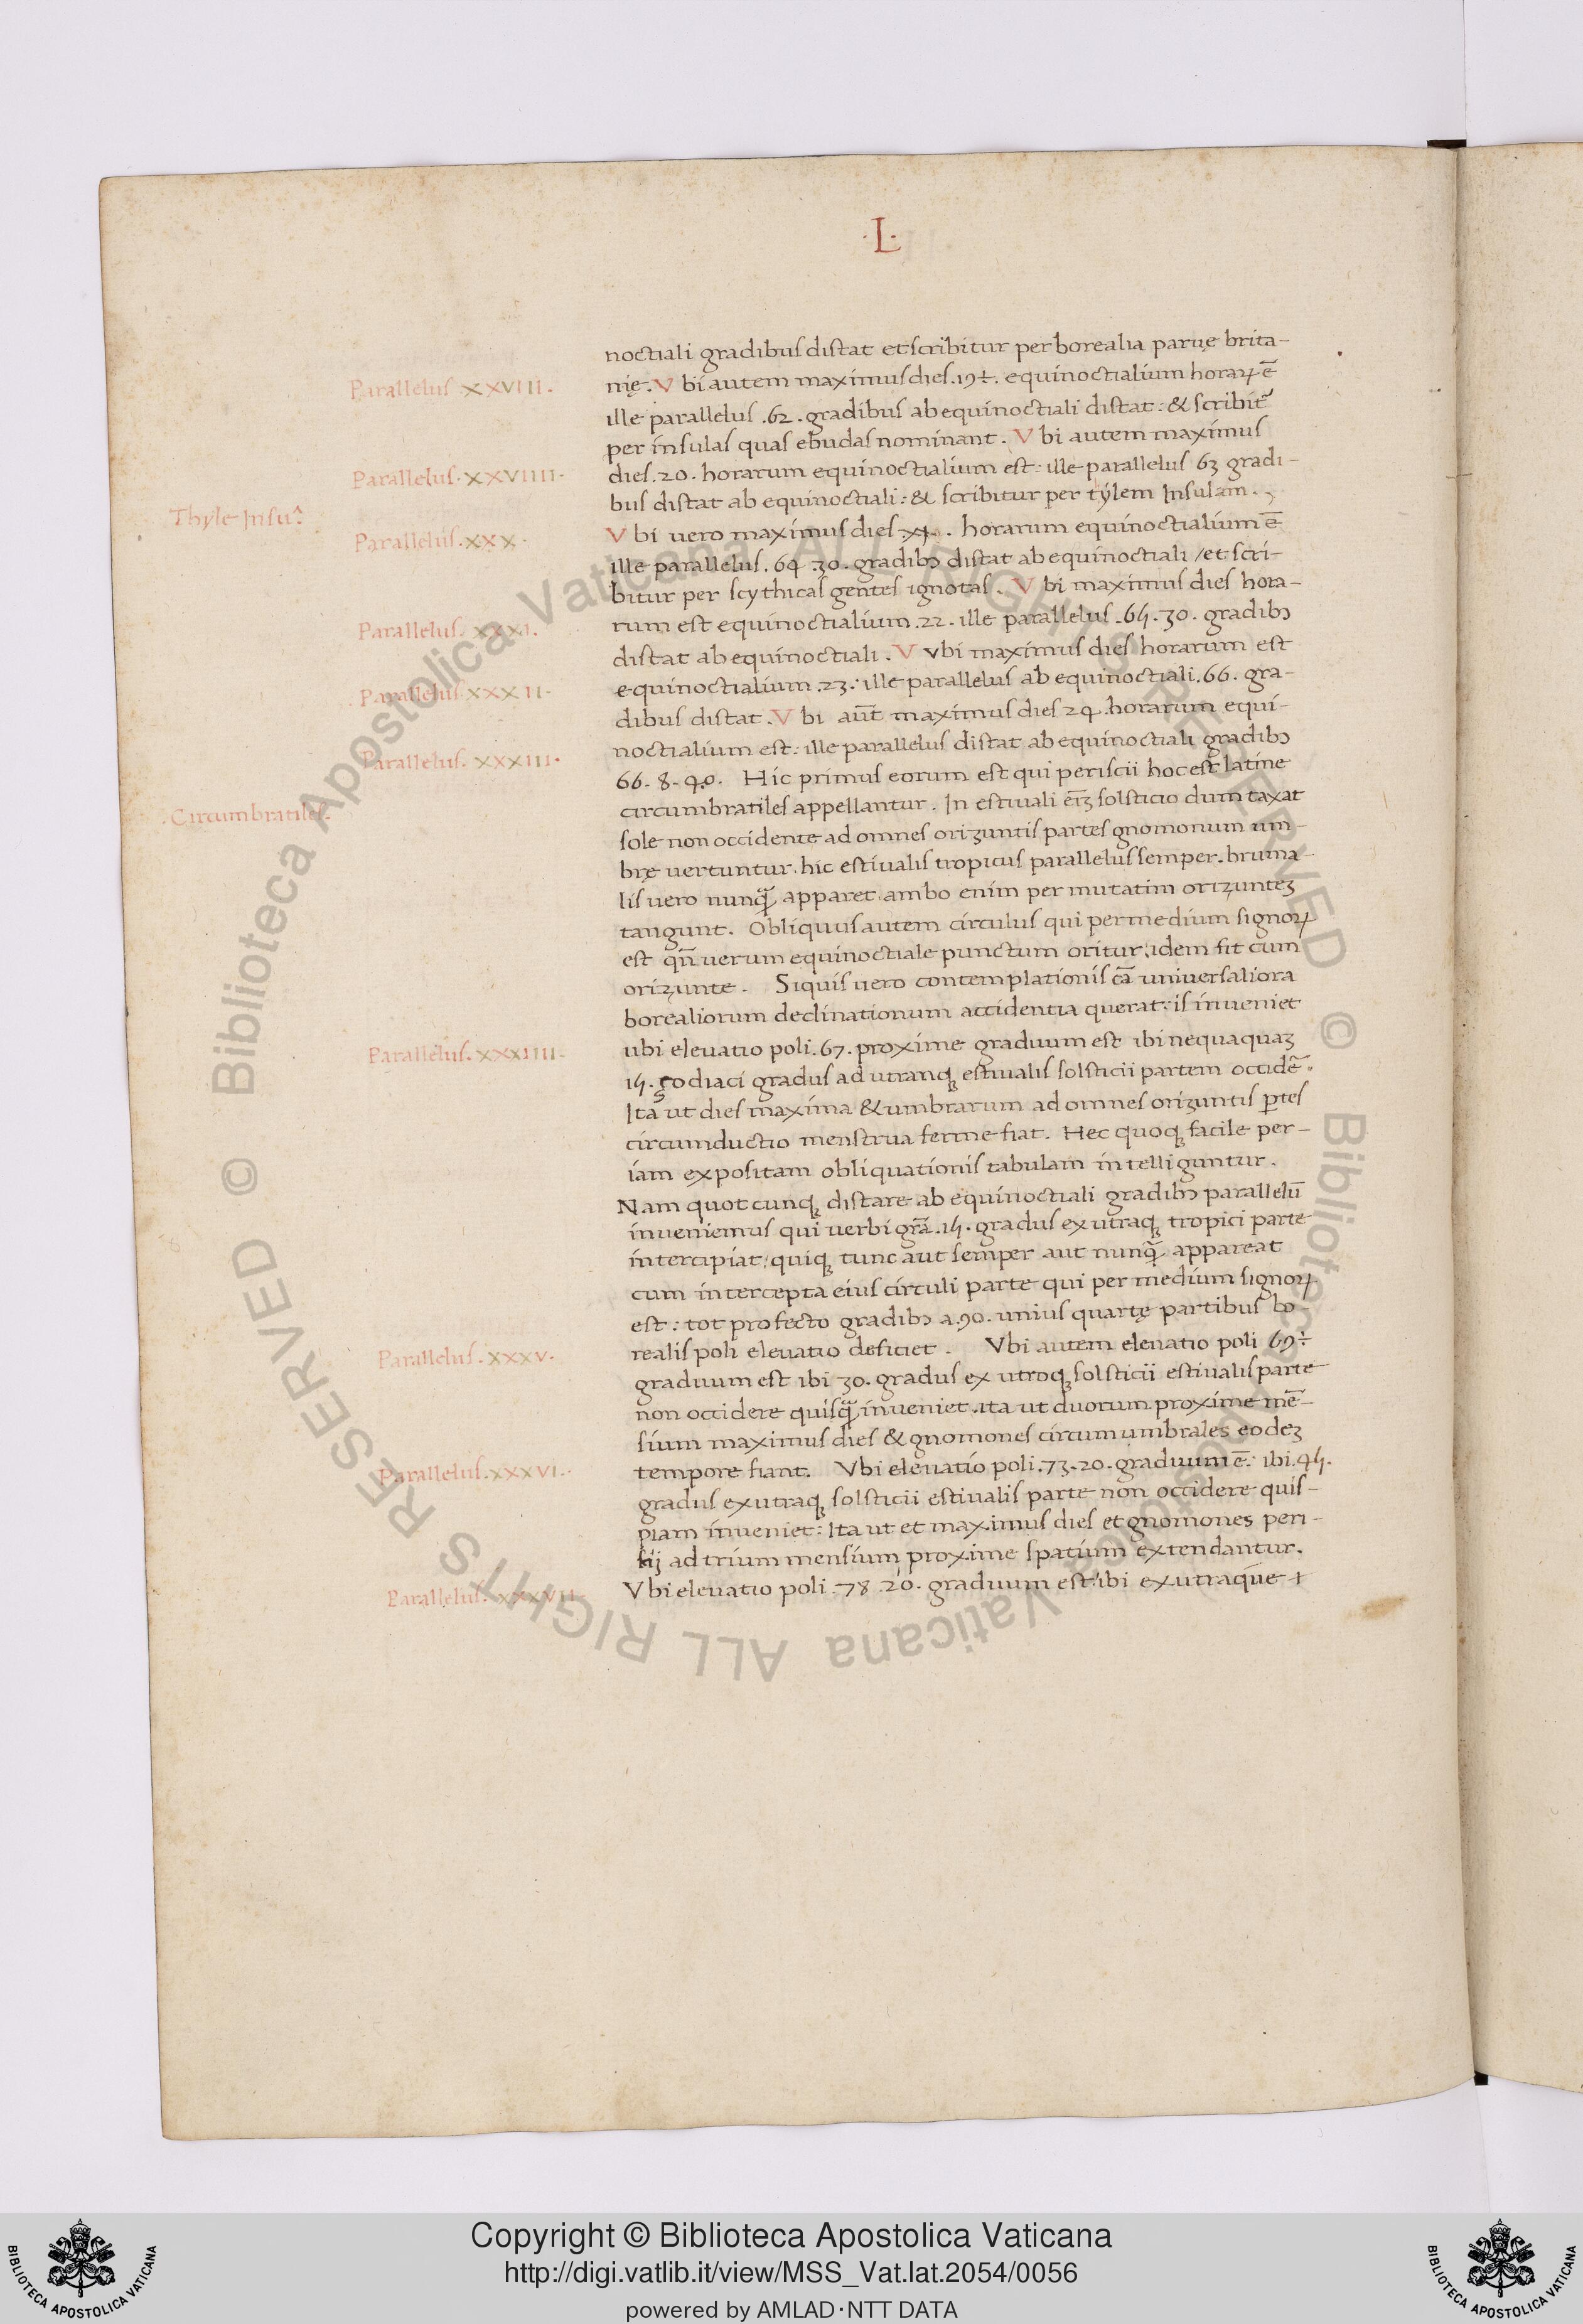 ·L·
noctiali gradibus distat et scribitur per borealia paruę brita-
nię. Vbi autem maximus dies .19 ½. equinoctialium horaꝝ ē
Parallelus XXVIII.
ille parallelus .62. gradibus ab equinoctiali distat: & scribit᷑
per insulas quas ebudas nominant. Vbi autem maximus
dies .20. horarum equinoctialium est: ille parallelus 63 gradi-
Parallelus. XXVIIII.
bus distat ab equinoctiali: & scribitur per tylem Insulam.
Thyle Insu.
Vbi uero maximus dies . horarum equinoctialium ē
Parallelus. XXX.
ille parallelus. 64 .30. gradibꝰ distat ab equinoctiali / et scri-
bitur per scythicas gentes ignotas. Vbi maximus dies hora-
rum est equinoctialium .22. ille parallelus .65.30. gradibꝰ
Parallelus. XXXI.
distat ab equinoctiali. V vbi maximus dies horarum est
equinoctialium .23: ille parallelus ab equinoctiali .66. gra-
Parallelus XXXII.
dibus distat. Vbi aūt maximus dies 24. horarum equi-
noctialium est: ille parallelus distat ab equinoctiali gradibꝰ
Parallelus. XXXIII.
66. 8. 40. Hic primus eorum est qui periscii hoc est latine
circumbratiles appellantur. In estiuali eīꝫ solsticio dum taxat
Circumbratiles.
sole non occidente ad omnes oriꝫuntis partes gnomonum um-
brę uertuntur. hic estiualis tropicus parallelus semper. bruma-
lis uero nunꝗ̃ apparet ambo enim per mutatim orizunteꝫ
tangunt. Obliquus autem circulus qui per medium signoꝝ
est qn̄ uerum equinoctiale punctum oritur, idem fit cum
orizunte. Siquis uero contemplationis cā uniuersaliora
borealiorum declinationum accidentia querat: is inueniet
ubi eleuatio poli .67. proxime graduum est ibi nequaquaꝫ
Parallelus. XXXIIII.
15. çodiaci gradus ad utranqꝫ estiualis solsticii partem occidē.
Ita ut dies maxima & umbrarum ad omnes oriꝫuntis ꝑtes
circumductio menstrua ferme fiat. Hec quoqꝫ facile per-
iam expositam obliquationis tabulam intelliguntur.
Nam quot cunqꝫ distare ab equinoctiali gradibꝰ parallelū
inueniemus qui uerbi grā .15. gradus ex utraqꝫ tropici parte
intercipiat: quiqꝫ tunc aut semper aut nunꝗ̃ appareat
cum intercepta eius circuli parte qui per medium signoꝝ
est: tot profecto gradibꝰ a .90. unius quartę partibus bo-
realis poli eleuatio deficiet. Vbi autem eleuatio poli 69 ½
Parallelus. XXXV.
graduum est ibi 30. gradus ex utroqꝫ solsticii estiualis parte
non occidere quisꝗ̃ inueniet. ita ut duorum proxime mē-
sium maximus dies & gnomones circumumbrales eodeꝫ
tempore fiant. Vbi eleuatio poli .73.20. graduum ē: ibi .45.
Parallelus. XXXVI.
gradus ex utraqꝫ solsticii estiualis parte non occidere quis-
piam inueniet: Ita ut et maximus dies et gnomones peri-
scij ad trium mensium proxime spatium extendantur.
Vbi eleuatio poli .78 .20. graduum est: ibi ex utraque
Parallelus. XXXVII.
© Biblioteca Apostolica Vaticana ALL RIGHTS RESERVED © Biblioteca Apostolica Vaticana ALL RIGHTS RESERVED
Copyright © Biblioteca Apostolica Vaticana
http://digi.vatlib.it/view/MSS_Vat.lat.2054/0056
powered by AMLAD·NTT DATA
BIBLIOTECA APOSTOLICA VATICANA
BIBLIOTECA APOSTOLICA VATICANA